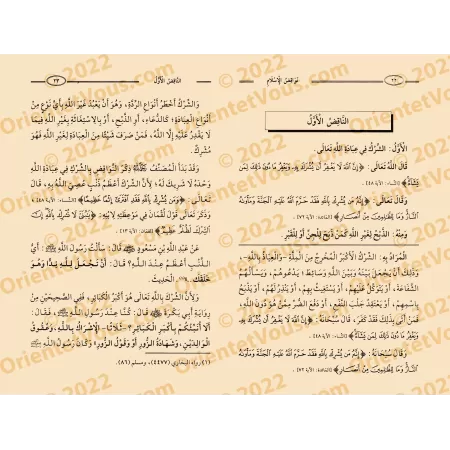 ٢٢ نواقض الإسلام
النَّاقِضُ الْأَوَّلُ
الأَوَّلُ: الشِّرْكُ فِي عِبَادَةِ اللَّهِ تَعَالَى.
قَالَ اللَّهُ تَعَالَى: ﴿إِنَّ اللَّهَ لَا يَغْفِرُ أَن يُشْرَكَ بِهِ وَيَغْفِرُ مَا دُونَ ذَٰلِكَ لِمَن
يَشَاءُ﴾ [النساء: الآية ٤٨].
وَقَالَ تَعَالَى: ﴿إِنَّهُ مَن يُشْرِكْ بِاللَّهِ فَقَدْ حَرَّمَ اللَّهُ عَلَيْهِ الْجَنَّةَ وَمَأْوَاهُ
النَّارُ وَمَا لِلظَّالِمِينَ مِنْ أَنصَارٍ﴾ [المائدة: الآية ٧٢].
وَمِنْهُ: الذَّبْحُ لِغَيْرِ اللَّهِ كَمَنْ ذَبَحَ لِلْجِنِّ أَوْ لِلْقَبْرِ
الْمُرَادُ بِهِ: الشِّرْكُ الأَكْبَرُ الْمُخْرِجُ مِنَ الْمِلَّةِ - وَالْعِيَاذُ بِاللَّهِ -،
وَذَلِكَ أَنْ يَجْعَلَ بَيْنَهُ وَبَيْنَ اللَّهِ وَسَائِطَ؛ يَدْعُوهُمْ، وَيَسْأَلُهُمُ
الشَّفَاعَةَ، وَيَتَوَكَّلُ عَلَيْهِمْ، أَوْ يَسْتَغِيثُ بِهِمْ، أَوْ يَنْذِرُ لَهُمْ، أَوْ يَذْبَحُ
بِاسْمِهِمْ، أَوْ يَعْتَقِدُ جَلْبَ النَّفْعِ، أَوْ دَفْعَ الضُّرِّ مِمَّنْ هُوَ دُونَ اللَّهِ،
فَمَنْ أَتَى بِذَلِكَ فَقَدْ كَفَرَ، قَالَ سُبْحَانَهُ: ﴿إِنَّ اللَّهَ لَا يَغْفِرُ أَن يُشْرَكَ بِهِ
وَيَغْفِرُ مَا دُونَ ذَٰلِكَ لِمَن يَشَاءُ﴾ [النساء: الآية ٤٨].
وَقَالَ سُبْحَانَهُ: ﴿إِنَّهُ مَن يُشْرِكْ بِاللَّهِ فَقَدْ حَرَّمَ اللَّهُ عَلَيْهِ الْجَنَّةَ وَمَأْوَاهُ
النَّارُ وَمَا لِلظَّالِمِينَ مِنْ أَنصَارٍ﴾ [المائدة: الآية ٧٢].
النَّاقِضُ الأَوَّلُ ٢٣
وَالشِّرْكُ أَخْطَرُ أَنْوَاعِ الرِّدَّةِ، وَهُوَ أَنْ يَعْبُدَ غَيْرَ اللَّهِ بِأَيِّ نَوْعٍ مِنْ
أَنْوَاعِ الْعِبَادَةِ؛ كَالدُّعَاءِ، أَوِ الذَّبْحِ، أَوْ بِالاسْتِغَاثَةِ بِغَيْرِ اللَّهِ فِيمَا
لَا يَقْدِرُ عَلَيْهِ إِلَّا اللَّهُ، فَمَنْ صَرَفَ شَيْئًا مِنَ الْعِبَادَةِ لِغَيْرِ اللَّهِ فَهُوَ
مُشْرِكٌ.
وَقَدْ بَدَأَ الْمُصَنِّفُ ذِكْرَ النَّوَاقِضِ بِالشِّرْكِ فِي عِبَادَةِ اللَّهِ
وَحْدَهُ لَا شَرِيكَ لَهُ؛ لِأَنَّ الشِّرْكَ أَعْظَمُ ذَنْبٍ عُصِيَ اللَّهُ بِهِ، قَالَ
تَعَالَى: ﴿وَمَن يُشْرِكْ بِاللَّهِ فَقَدِ افْتَرَىٰ إِثْمًا عَظِيمًا﴾ [النساء: الآية ٤٨].
وَذَكَرَ تَعَالَى قَوْلَ لُقْمَانَ فِي مَوْعِظَتِهِ لِابْنِهِ: ﴿يَا بُنَيَّ لَا تُشْرِكْ بِاللَّهِ إِنَّ
الشِّرْكَ لَظُلْمٌ عَظِيمٌ﴾ [لقمان: الآية ١٣].
عَنْ عَبْدِ اللَّهِ بْنِ مَسْعُودٍ قَالَ: سَأَلْتُ رَسُولَ اللَّهِ ﷺ: أَيُّ
الذَّنْبِ أَعْظَمُ عِنْدَ اللَّهِ؟ قَالَ: أَنْ تَجْعَلَ لِلَّهِ نِدًّا وَهُوَ
خَلَقَكَ (١) الْحَدِيثَ.
وَلِأَنَّ الشِّرْكَ بِاللَّهِ تَعَالَى هُوَ أَكْبَرُ الْكَبَائِرِ، فَفِي الصَّحِيحَيْنِ مِنْ
رِوَايَةِ أَبِي بَكْرَةَ قَالَ: كُنَّا عِنْدَ رَسُولِ اللَّهِ ﷺ فَقَالَ:
أَلَا أُنَبِّئُكُمْ بِأَكْبَرِ الْكَبَائِرِ؟ - ثَلَاثًا - الإِشْرَاكُ بِاللَّهِ، وَعُقُوقُ
الْوَالِدَيْنِ، وَشَهَادَةُ الزُّورِ أَوْ قَوْلُ الزُّورِ» وَكَانَ رَسُولُ اللَّهِ ﷺ
(١) رواه البخاري (٤٤٧٧)، ومسلم (٨٦).
© 2022
OrientetVous.com